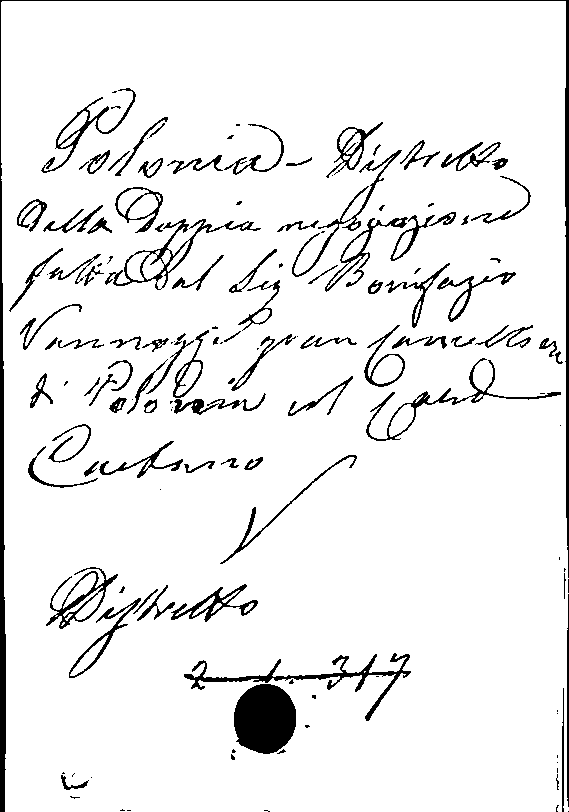 Polonia - Distretto
della Doppia negoziazione
fatta dal Sig Bonifazio
Vannozzi gran Cancelliere
di Polonia col Card
Caetano
Distretto
2 317